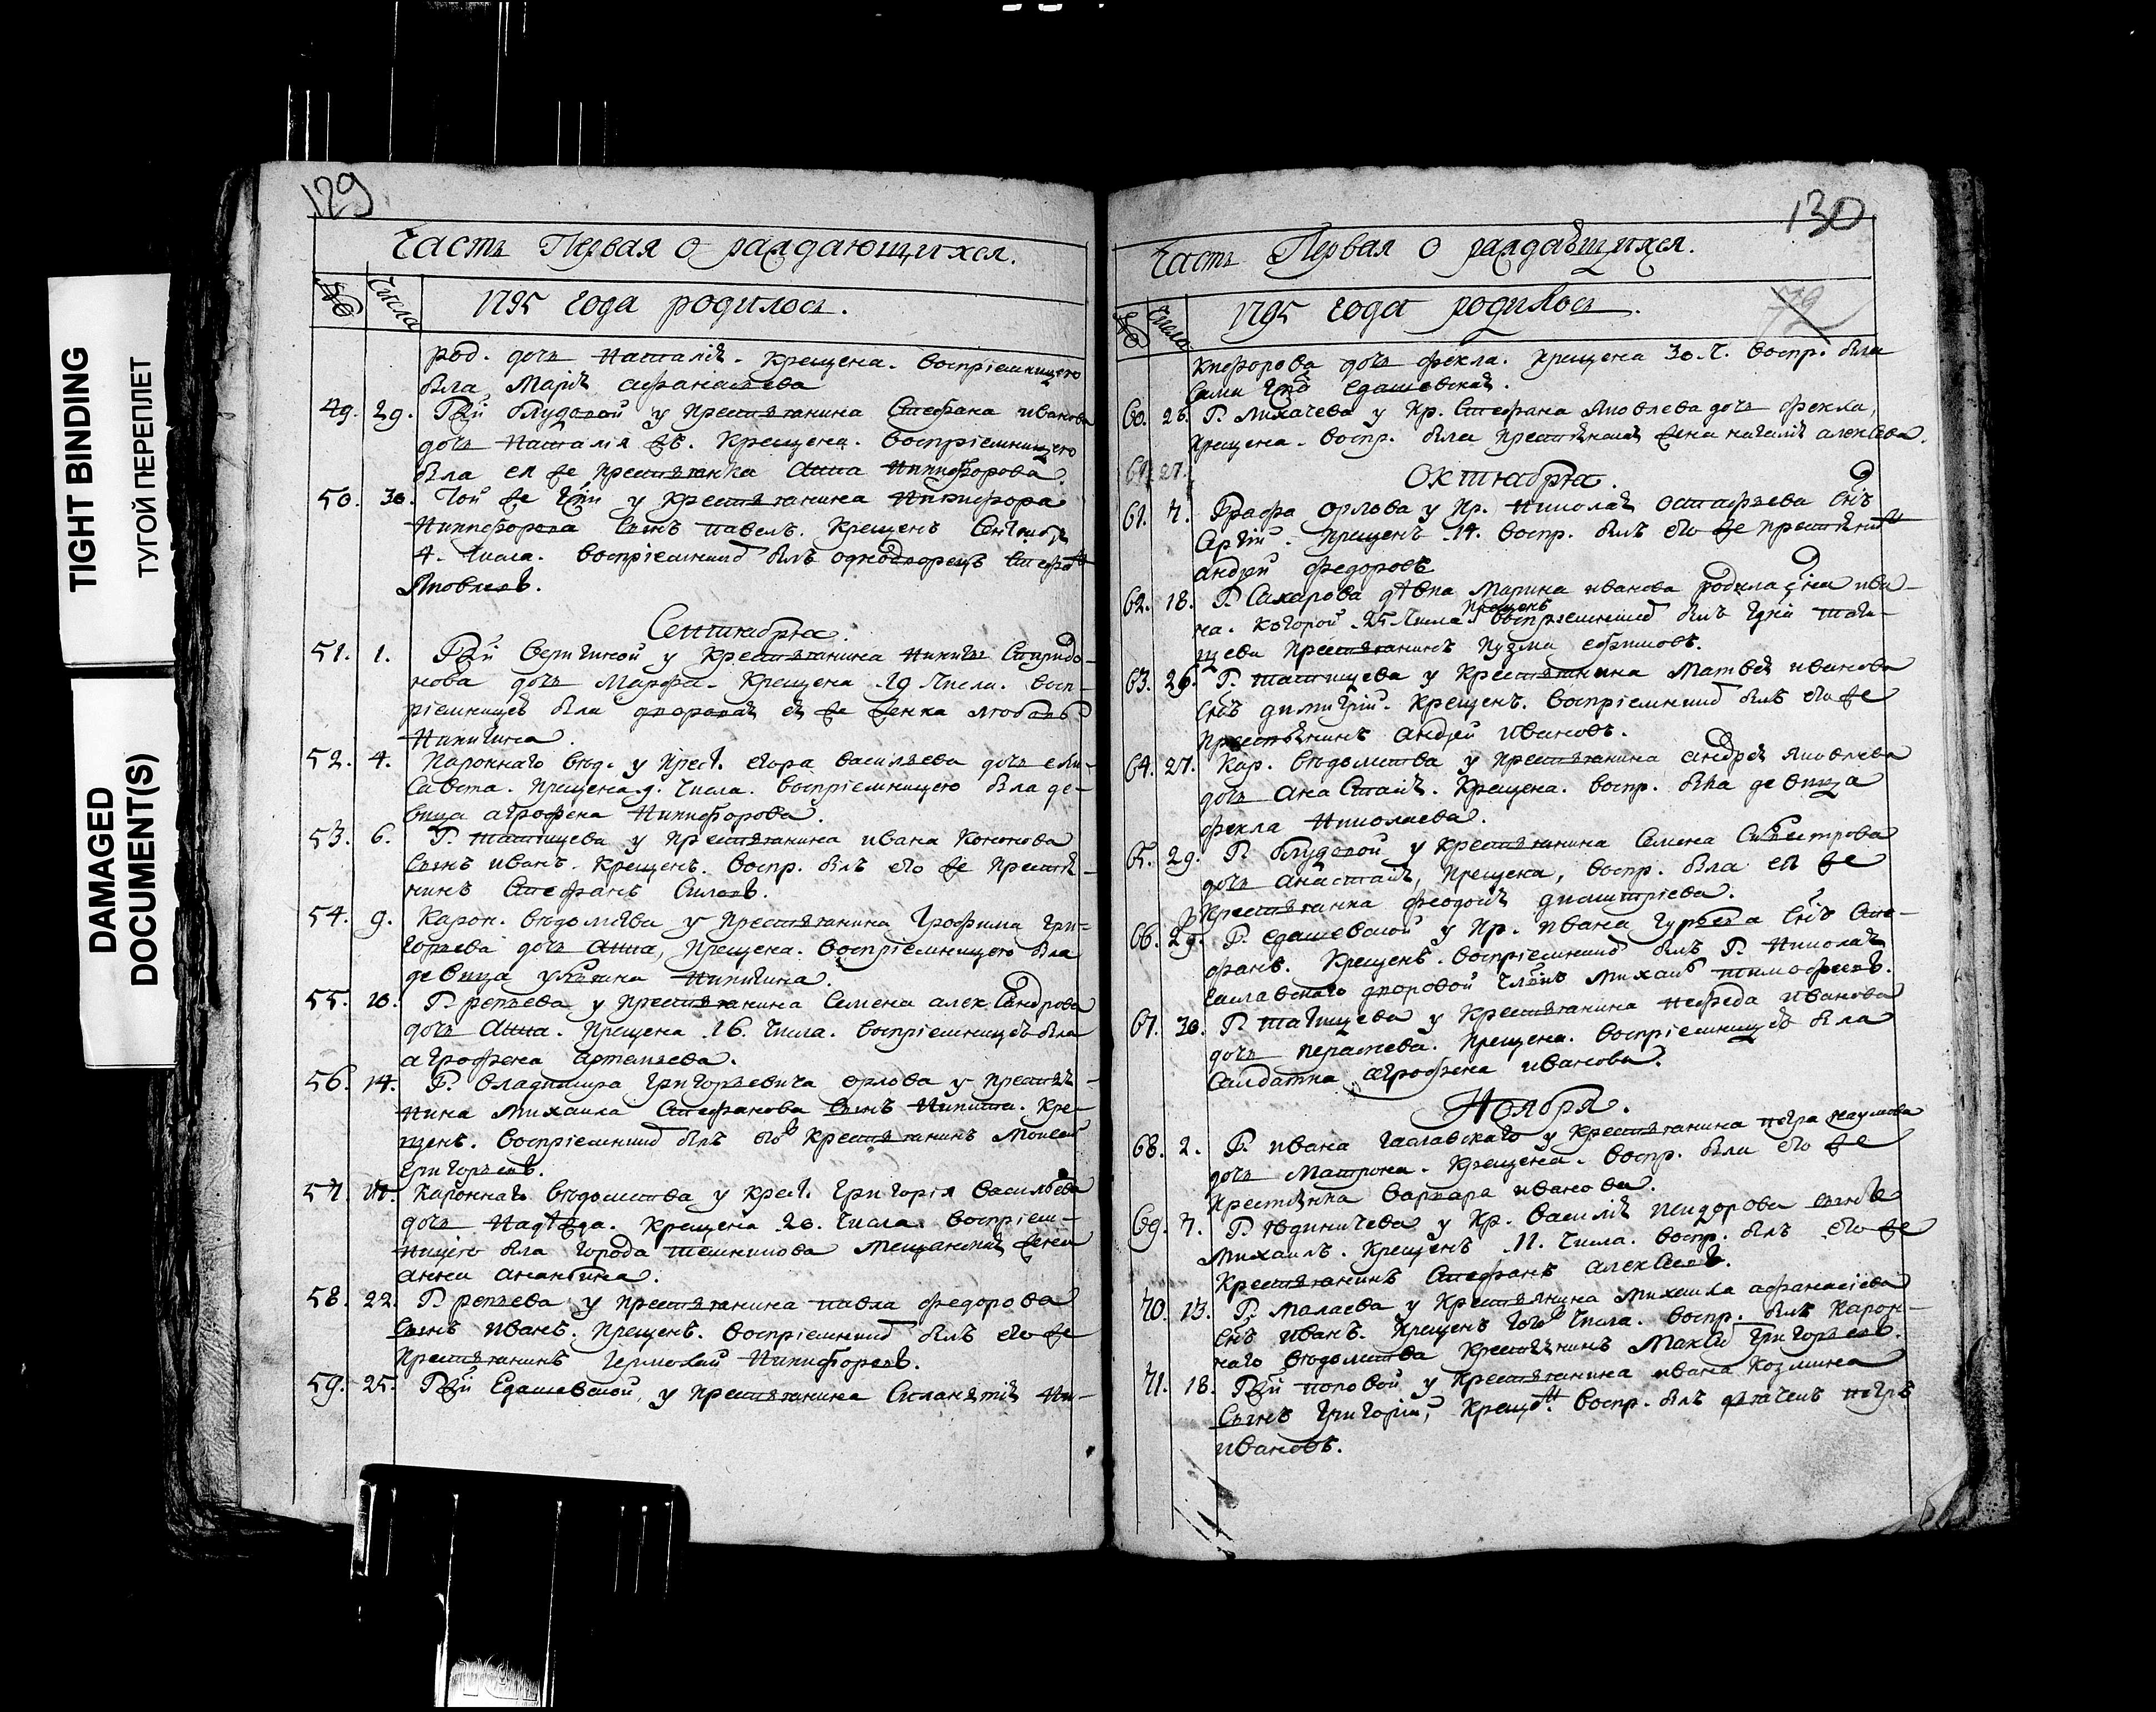 TIGHT BINDING
ТУГОЙ ПЕРЕПЛЕТ
DAMAGED
DOCUMENT(S)
129
Часть Первая о раждающихся.
№ Числа 1795 года родилось.
род. дочь Наталiя. Крещена. Воспрiемницею
была Марiя Афанасьева
49. 29. Гжи Блудовой у крестьянина Стефана Иванова
дочь Наталiя же. Крещена. Воспрiемницею
была ея же крестьянка Анна Никифорова.
50. 30. Той же Гжи у крестьянина Никифора
Никифорова сынъ Павелъ. Крещенъ Сентября
4. числа. Воспрiемникъ былъ однодворецъ Стефанъ
Яковлевъ.
Сентября.
51. 1. Гжи у крестьянина Никиты Спиридо-
нова дочь Марфа. Крещена 19 числа. Восп-
рiемницею была дворовая ея же женка Любовь
Никитина.
52. 4. Кароннаго вѣд. у крест. Егора Васильева дочь Ели-
савета. Крещена 9. числа. Воспрiемницею была де-
вица Агрофена Никифорова.
53. 6. Г. Татищева у крестьянина Ивана Кононова
сынъ Иванъ. Крещенъ. Воспр. былъ его же крестья-
нинъ Стефанъ Силовъ.
54. 9. Карон. вѣдомства у крестьянина Трофима Гри-
горьева дочь Анна, крещена. Воспрiемницею была
девица Улiяна Никитина.
55. 10. Г. Репьева у крестьянина Семена Александрова
дочь Анна. Крещена 16. числа. Воспрiемницею была
Агрофена Артемьева.
56. 14. Г. Владимира Григорьевича Орлова у крестья-
нина Михаила Стефанова сынъ Никита. Кре-
щенъ. Воспрiемникъ былъ его крестьянинъ Моисей
Григорьевъ.
57. 17. Кароннаго вѣдомства у крест. Григорiя Васильева
дочь Надежда. Крещена 20. числа. Воспрiем-
ницею была города Темникова мещанская женка
Анна Ананьина.
58. 22. Г. Репьева у крестьянина Павла Федорова
сынъ Иванъ. Крещенъ. Воспрiемникъ былъ его же
крестьянинъ Никифоровъ.
59. 25. Гжи Едашевской, у крестьянина Ни-
130
Часть Первая о раждающихся.
№ Числа 1795 года родилось. 72
кифорова дочь Фекла. Крещена 30. ч. Воспр. была
сама Гжа Едашевская.
60. 26. Г. Лихачева у кр. Стефана Яковлева дочь Фекла,
крещена. Воспр. была крестьянская жена Наталiя Алексѣева.
61. 27.
Октября.
61. 7. Графа Орлова у кр. Николая Остафьева снъ
Сергiй. Крещенъ 14. Воспр. былъ его же крестьянинъ
Андрей Федоровъ
62. 18. Г. Сахарова дѣвка Марина Иванова родила сына Ива-
на. Которой 25 числа крещенъ воспрiемникъ былъ Гдна Тати-
щева крестьянинъ Кузма Ефимовъ.
63. 26. Г. Татищева у крестьянина Матвея Иванова
снъ Димитрiй. Крещенъ. Воспрiемникъ былъ его же
крестьянинъ Андрей Ивановъ.
64. 27. Кар. вѣдомства у крестьянина Андрея Яковлева
дочь Анастасiя. Крещена. Воспр. была девица
Фекла Николаева.
65. 29. Г. Блудовой у крестьянина Семена Силвестрова
дочь Анастасiя, крещена, воспр. была ея же
крестьянка Феодосiя Димитрiева.
66. 29. Г. Едашевской у кр. Ивана Гурьева снъ Сте-
фанъ. Крещенъ. Воспрiемникъ былъ Г. Николая
Чаславскаго дворовой члвкъ Михаилъ Тимофеевъ.
67. 30. Г. Татищева у крестьянина Нефеда Иванова
дочь Параскева. Крещена. Воспрiемницею была
салдатка Агрофена Иванова.
Ноября.
68. 2. Г. Ивана Чаславскаго у крестьянина Петра Наумова
дочь Матрона. Крещена. Воспр. была его же
крестьянка Варвара Иванова.
69. 7. Г. Юдиничева у кр. Василiя Исидорова сынъ
Михаилъ. Крещенъ 11. числа. Воспр. былъ его же
крестьянинъ Стефанъ Алексеевъ.
70. 13. Г. Малаева у крестьянина Михаила Афанасiева
снъ Иванъ. Крещенъ того числа. Воспр. былъ карон-
наго вѣдомства крестьянинъ Максимъ Григорьевъ.
71. 18. Гжи Поповой у крестьянина Ивана Козмина
сынъ Григорiй, крещенъ. Воспр. былъ дьячекъ Петръ
Ивановъ.